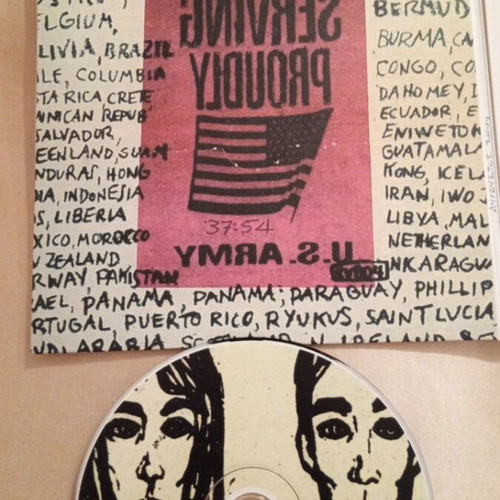 ELGIUM,
LIVIA, BRAZIL
ILE, COLUMBIA
TA RICA CRETE
INICAN REPUB
SALVADOR,
EENLAND, GUAM
NDURAS, HONG
IA, INDONESIA
S, LIBERIA
XICO, MOROCCO
ZEALAND
RWAY PAKISTAN
SERVING
PROUDLY
37:54
U.S. ARMY
BERMUD
BURMA, CA
CONGO, CO
DAHOMEY, I
ECUADOR, E
ENIWETOK
GUATAMALA
KONG, KEL
IRAN, IWO
LIBYA, MAL
NETHERLAN
NKARAGU
AEL, PANAMA, PANAMA, PARAGUAY, PHILLIP
RTUGAL, PUERTO RICO, RYUKUS, SAINT LUCIA
UDI ARABIA